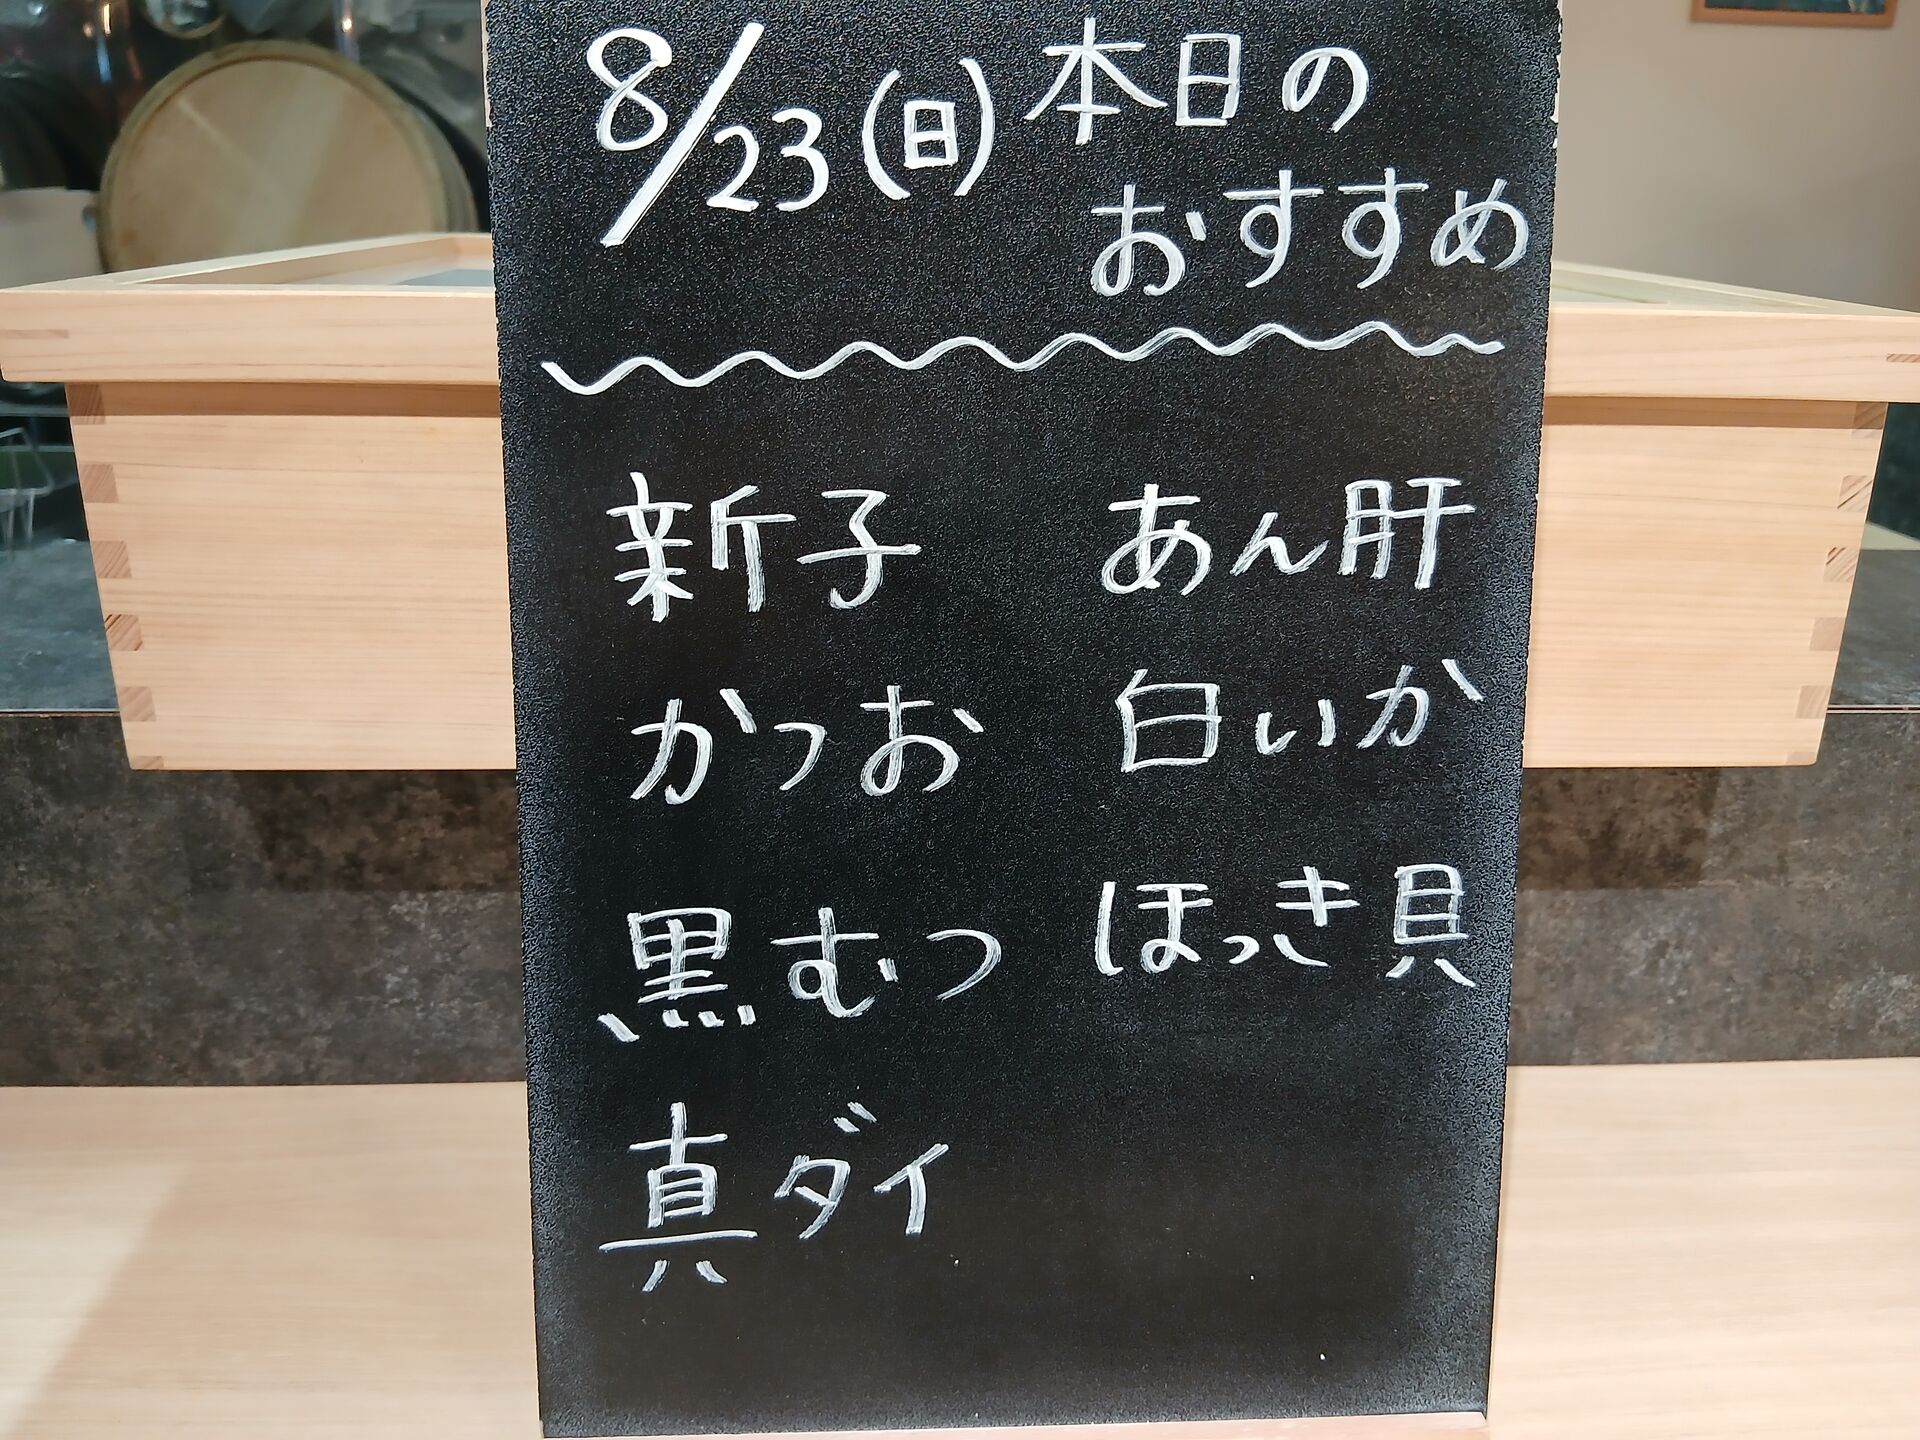 8/23(日) 本日の
おすすめ
新子
かつお
黒むつ
真ダイ
あん肝
白いか
ほっき貝